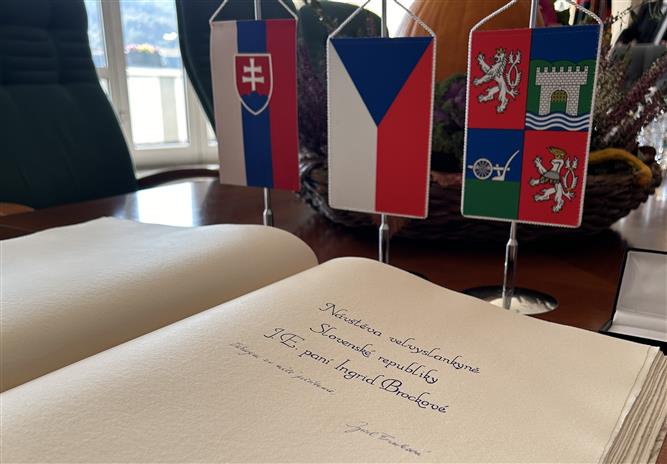 Návštěva velvyslankyně
Slovenské republiky
J.E. paní Ingrid Brockové
Ďakujem za milé prijatie,